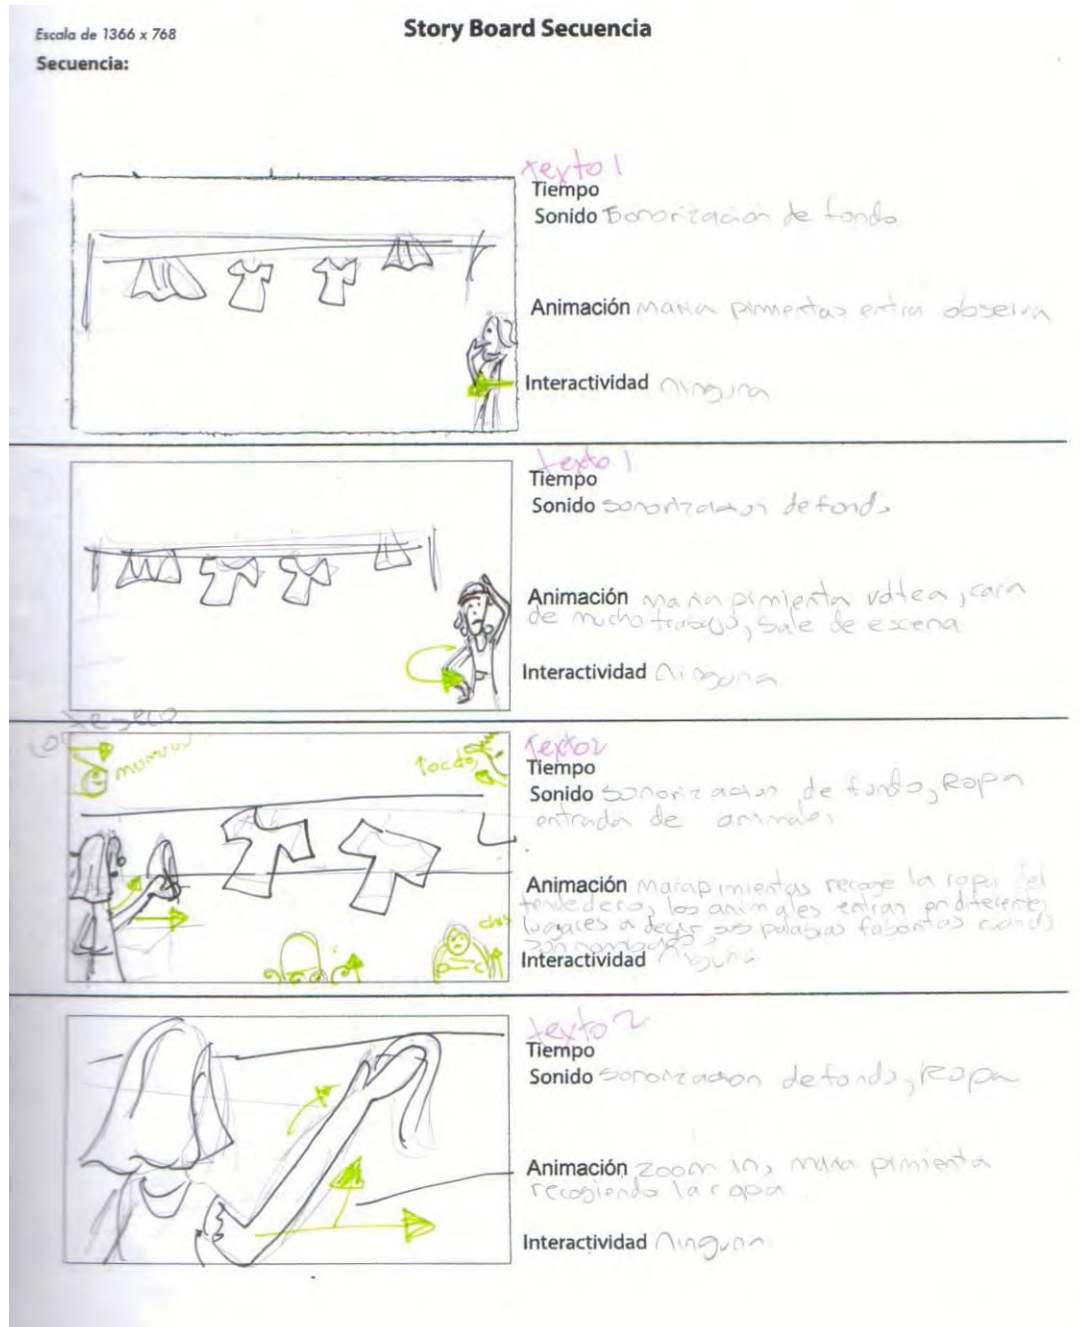 Story Board Secuencia
Escala de 1366 x 768
Secuencia:
texto 1
Tiempo
Sonido Sonorización de fondo
Animación Maria pimientas entra observa
Interactividad ninguna
texto 1
Tiempo
Sonido sonorizacion de fondo
Animación maria pimienta voltea, cara
de mucho trabajo, sale de escena
Interactividad Ninguna
texto 2
mumuu
Tiempo
Sonido sonorizacion de fondo, Ropa
entrada de animales
Animación Mariapimientas recoge la ropa del
tendedero, los animales entran en diferente
lugares a decir sus palabras faboritas cuando
son nombrados,
Interactividad Ninguna
texto 2
Tiempo
Sonido sonorizacion de fondo, Ropa
Animación zoom in, maria pimienta
recogiendo la ropa
Interactividad Ninguna